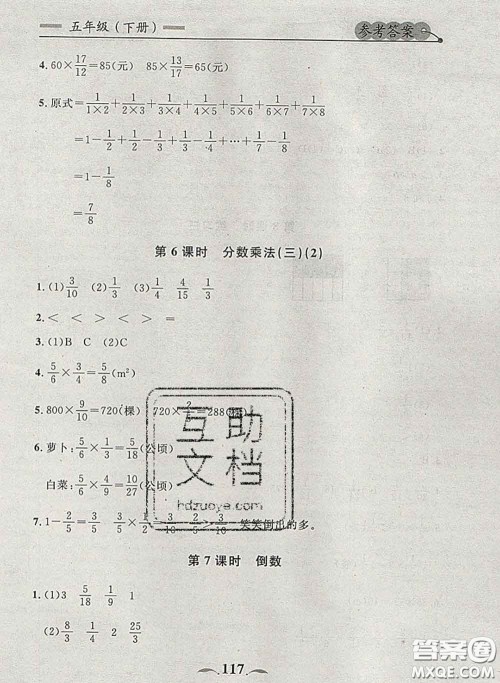 五年级(下册)
参考答案
4. 60×17/12=85(元) 85×13/17=65(元)
5. 原式=1/(1×2)+1/(2×3)+1/(3×4)+1/(4×5)+1/(5×6)+1/(6×7)+1/(7×8)
=1-1/2+1/2-1/3+1/3-1/4+…+1/7-1/8
=1-1/8
=7/8
第6课时 分数乘法(三)(2)
1. (1)3/10 (2)1/3 1/4 4/15 1/3
2. < < > < > =
3. (1)B C (2)C
4. 5/6×3/4=5/8(m²)
5. 800×9/10=720(棵) 720×2/5=288(棵)
6. 萝卜:5/6×1/3=5/18(公顷)
白菜:5/6×4/9=10/27(公顷)
7. 1-2/5=3/5 3/5×1/2=3/10
笑笑倒出的多。
互助
文档
hdzuoye.com
第7课时 倒数
1. (1)3 5/18 1/9 1
(2)8/3 1/4 2
117
答案圈
MXQE.COM